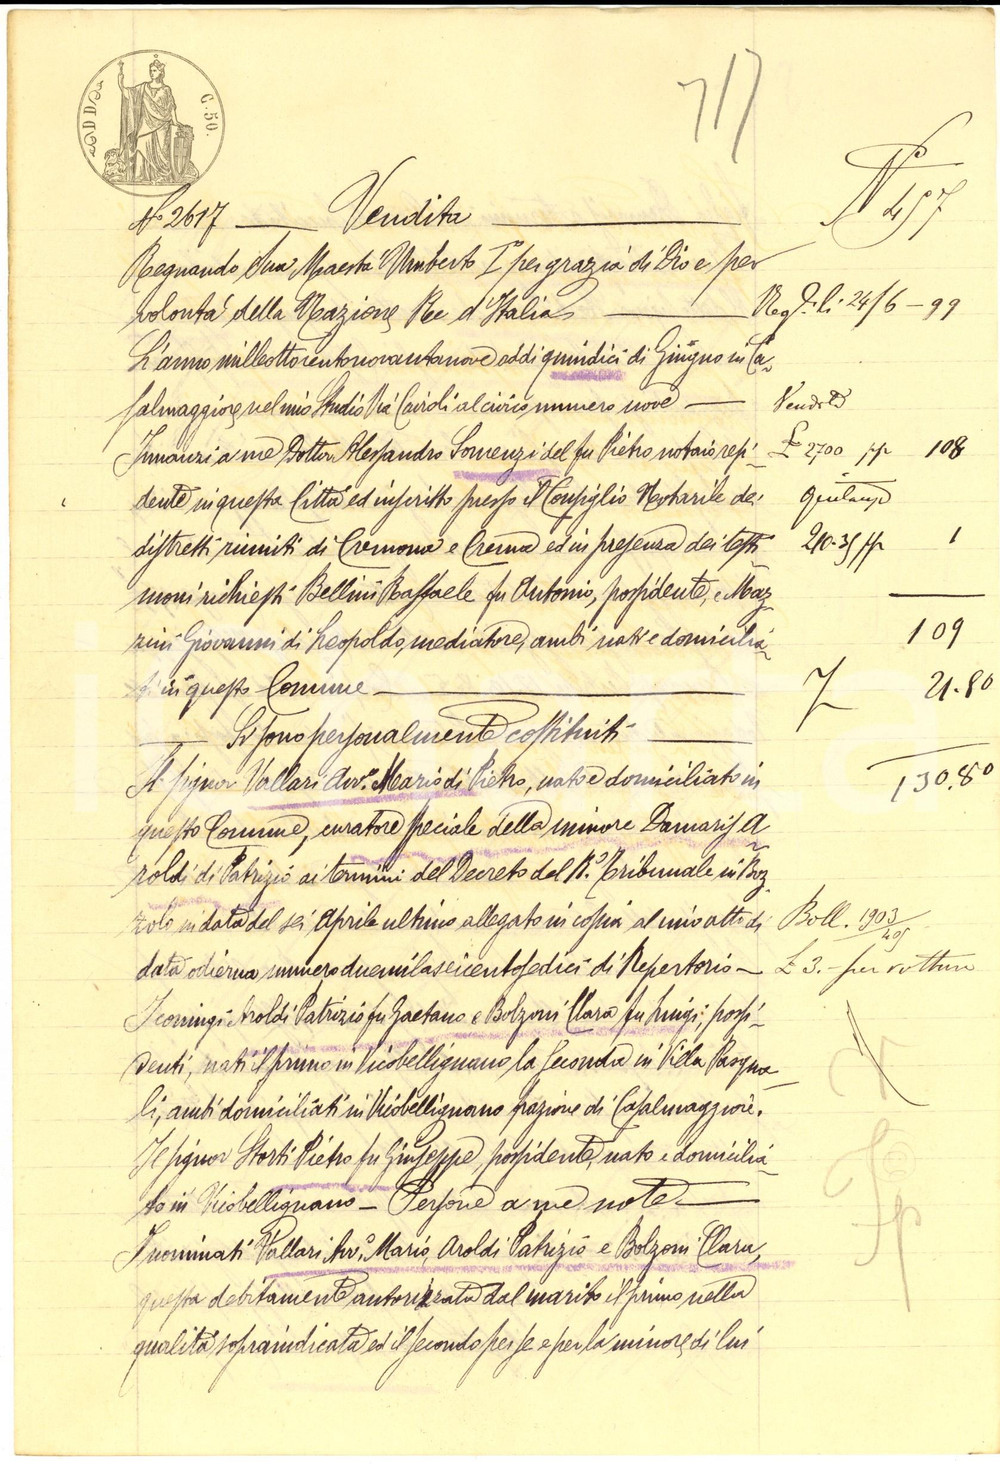 C. 50.
717
N° 457
N° 2617 Vendita
Regnando Sua Maestà Umberto I° per grazia di Dio e per
volontà della Nazione Re d'Italia
Reg. li 24/6-99
L'anno milleottocentonovantanove addì quindici di Giugno in Ca-
salmaggiore, nel mio Studio Via Cairoli al civico numero nove
Vendita
Innanzi a me Dottor Alessandro Somenzi del fu Pietro notaio resi-
£ 2700 108
dente in questa Città ed inscritto presso il Consiglio Notarile dei
Quitanza
distretti riuniti di Cremona e Crema ed in presenza dei testi
210.35 1
moni richiesti Bellini Raffaele fu Antonio, possidente, e Maz
zini Giovanni di Leopoldo, mediatore, ambi nati e domicilia-
109
ti in questo Comune
21.80
Si sono personalmente costituiti
Il signor Vallari Avv.° Mario di Pietro, nato e domiciliato in
130.80
questo Comune, curatore speciale della minore Damaris A
roldi di Patrizio ai termini del Decreto del R.° Tribunale in Boz
zolo in data del sei Aprile ultimo allegato in copia al mio atto di
Boll. 1903/405
data odierna numero duemilaseicentosedici di Repertorio –
£ 3.- per volture
I coniugi Aroldi Patrizio fu Gaetano e Bolzoni Clara fu Luigi, possi-
denti, nati il primo in Vicobellignano la seconda in Villa Pasqua
li, ambi domiciliati in Vicobellignano frazione di Casalmaggiore.
Il signor Storti Pietro fu Giuseppe, possidente, nato e domicilia-
to in Vicobellignano – Persone a me note
I nominati Vallari Avv.° Mario, Aroldi Patrizio e Bolzoni Clara,
questa debitamente autorizzata dal marito il primo nella
qualità sopraindicata ed il secondo per se e per la minore di lui